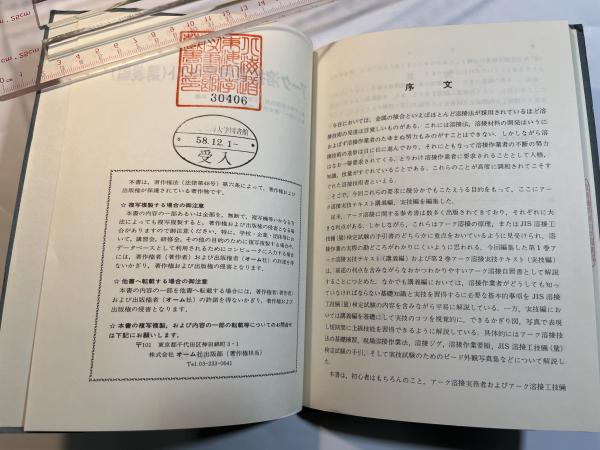 30406
大学図書館
58.12.1-
受入
本書は，著作権法（法律第48号）第六条によって，著作権および
出版権が保護されている著作物です．
☆ 複写複製する場合の御注意
本書の内容の一部あるいは全部を，無断で，複写機等いかなる方
法によっても複写複製すると，著作権および出版権の侵害となる場
合がありますので御注意ください．特に，学校・企業・団体等にお
いて，講習会，研修会，その他の目的のために複写複製する場合や，
データベースとして利用されるためにコンピュータに入力する場合
には，著作権者（著作者）および出版権者（オーム社）の許諾を得
ないかぎり，著作権および出版権の侵害となります．
☆ 他書へ転載する場合の御注意
本書の内容の一部を他書へ転載する場合には，著作権者（著作者）
および出版権者（オーム社）の許諾を得ないかぎり，著作権および出
版権の侵害となります．
☆ 本書の複写複製，および内容の一部の転載等についてのお問合せ
は下記にお願いします．
〒101 東京都千代田区神田錦町３－１
株式会社 オーム社出版部（著作権担当）
Tel.03-233-0641
序文
今日においては，金属の接合といえばほとんど溶接法が採用されているほど
溶接技術の発達は目覚しいものがある．これには溶接法，溶接材料の開発はいうに
およばず溶接作業者のたゆまぬ努力もみのがすことはできない．しかしながら溶
接技術の進歩は日に日に進んでおり，それにともなって溶接作業者の不断の努力
はなお一層要求されてくる．とりわけ溶接作業者に要求されることとして人格，
知識，技量がすぐれていることである．これらのことが高度に調和されてこそす
ぐれた溶接技術者といえる．
そこで，今回これらの要求に幾分かでもこたえうる目的をもって，ここにアー
ク溶接実技テキスト講義編，実技編を編集した．
従来，アーク溶接に関する参考書は数多く出版されてきており，それぞれに大
きな利点がある．しかしながら，これらはアーク溶接の原理，またはJIS溶接工
技倆（量）検定試験の手引書のどちらかに重点をおいているように見受けられ，溶
接作業の実際の勘どころがわかりにくいように思われる．今回編集した第１巻ア
ーク溶接実技テキスト（講義編）および第２巻アーク溶接実技テキスト（実技編）
は，前述の利点を含みながらなおかつわかりやすいアーク溶接自習書として解説
することにつとめた．なかでも講義編においては，溶接作業者がどうしても知っ
ていなければならない基礎知識と実技を習得するに必要な基本的事項をJIS溶接
工技倆（量）検定試験の内容を含みながら平易に解説している．一方，実技編におい
ては講義編を基礎にして実技のコツを視覚的に，できるかぎり図，写真で表現
し短期間に上級技能を習得できるように解説している．具体的にはアーク溶接実
技の基礎練習，現場溶接作業法，溶接ジグ，溶接作業要領，JIS溶接工技倆（量）
検定試験の手引，そして実技試験のためのビード外観写真集などについて解説し
た．
本書は，初心者はもちろんのこと，アーク溶接実務者およびアーク溶接工技倆